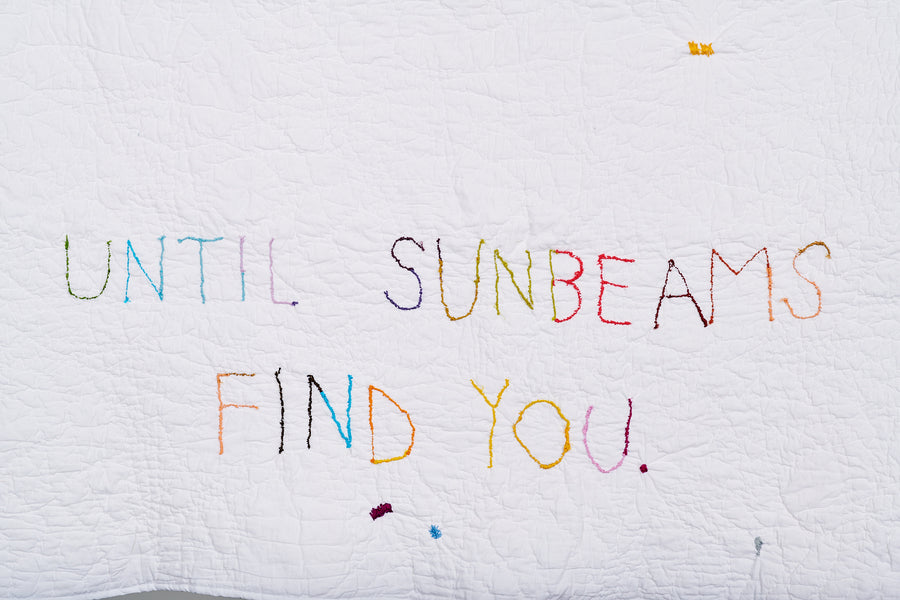 UNTIL SUNBEAMS
FIND YOU.